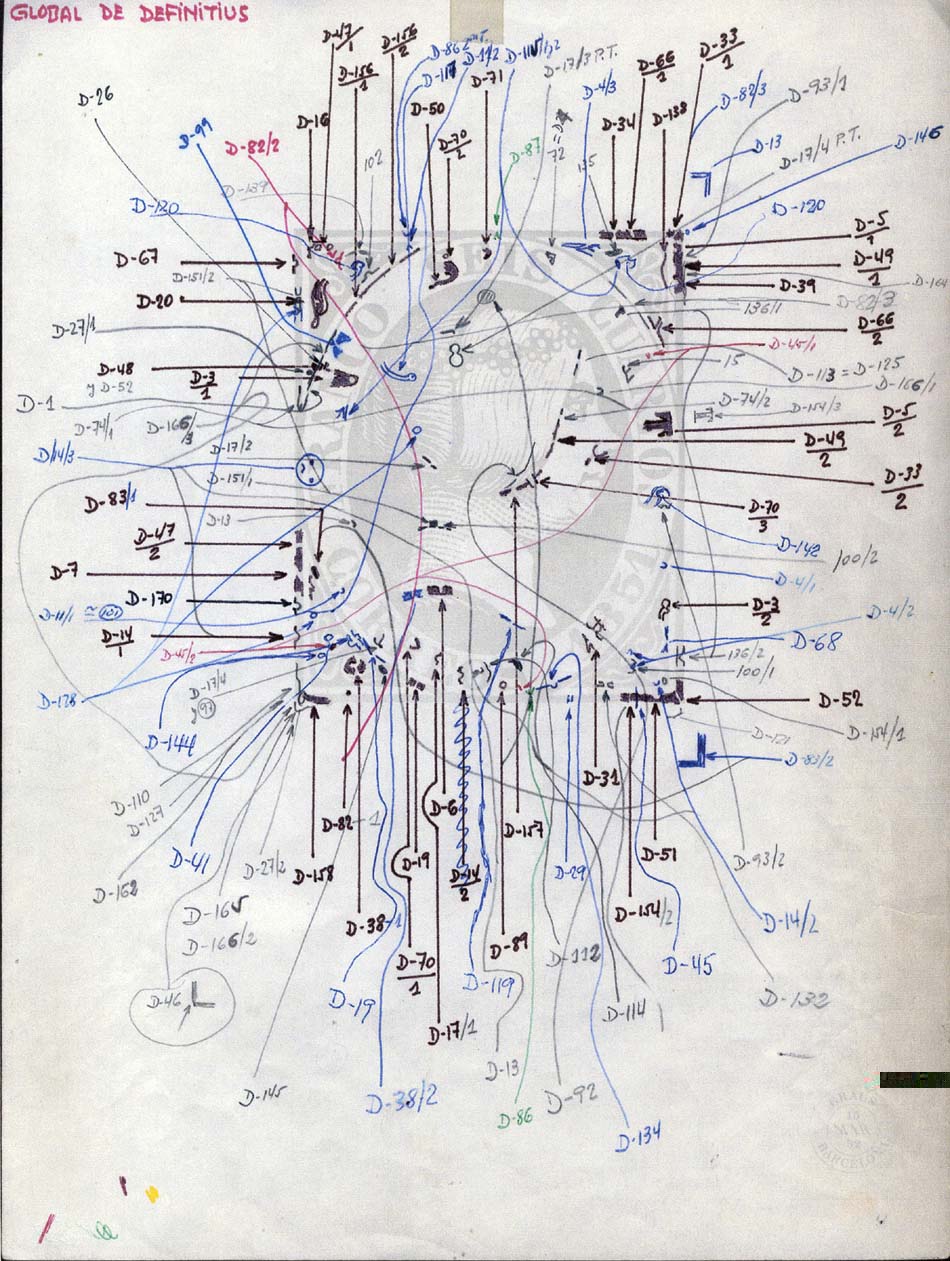 GLOBAL DE DEFINITIUS
D-47/1
D-156/2
D-117
D-71
D-17/3 P.T.
D-66/1
D-33/1
D-156/1
D-26
D-16
D-50
D-70/2
D-4/3
D-34
D-138
D-82/3
D-93/1
D-99
D-82/2
102
D-87
72
D-13
D-17/4 P.T.
D-146
D-139
D-120
D-120
D-67
D-5/1
D-151/2
D-49/1
D-20
D-39
D-82/3
136/1
D-27/1
D-66/2
D-45/1
D-48
y D-52
D-3/1
15
D-113 = D-125
D-166/1
D-1
D-74/2
D-154/3
D-74/1
D-166/3
D-5/2
D-17/2
D-49/2
D-14/3
D-151/1
D-33/2
D-83/1
D-13
D-70/3
D-47/2
D-142
100/2
D-7
D-4/1
D-170
D-3/2
D-11/1 ≅ 101
D-4/2
D-14/1
D-68
D-45/2
136/2
100/1
D-17/4
y 97
D-128
D-52
D-144
D-121
D-154/1
D-83/2
D-110
D-127
D-31
D-6
D-82-1
D-157
D-41
D-27/2
D-158
D-19
D-14/2
D-29
D-51
D-93/2
D-162
D-165
D-166/2
D-38-1
D-89
D-154/2
D-14/2
D-112
D-45
D-70/1
D-46
D-19
D-119
D-114
D-132
D-17/1
D-13
D-145
D-38/2
D-86
D-92
D-134